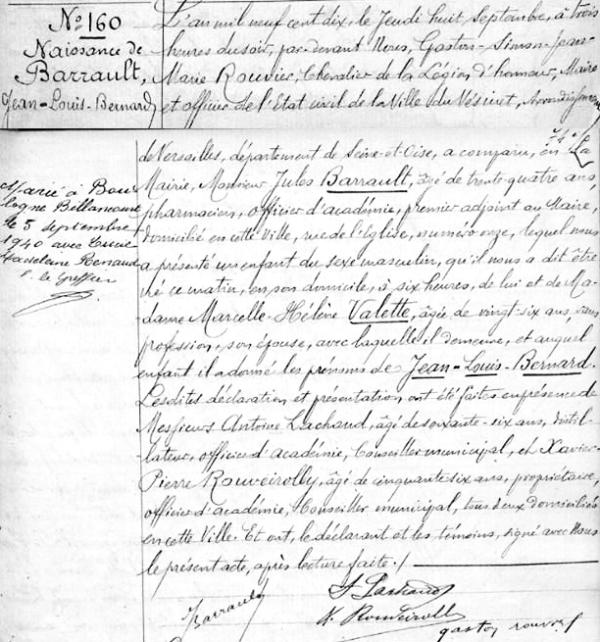 N° 160
Naissance de
Barrault,
Jean-Louis-Bernard
L'an mil neuf cent dix, le Jeudi huit Septembre, à trois
heures du soir, par-devant Nous, Gaston-Simon-Jean-
Marie Rouvier, Chevalier de la Légion d'honneur, Maire
et officier de l'Etat civil de la Ville du Vésinet, Arrondissement
de Versailles, département de Seine-et-Oise, a comparu, en la
Mairie, Monsieur Jules Barrault, âgé de trente-quatre ans,
pharmacien, officier d'académie, premier adjoint au Maire,
domicilié en cette Ville, rue de l'Eglise, numéro onze, lequel nous
a présenté un enfant du sexe masculin, qu'il nous a dit être
né ce matin, en son domicile, à six heures, de lui et de Ma-
dame Marcelle-Hélène Valette, âgée de vingt-six ans, sans
profession, son épouse, avec laquelle il demeure, et auquel
enfant il a donné les prénoms de Jean-Louis-Bernard.
Lesdites déclaration et présentation ont été faites en présence de
Messieurs Antoine Lachaud, âgé de soixante-six ans, distil-
lateur, officier d'académie, Conseiller municipal, et Xavier-
Pierre Rouveirolly, âgé de cinquante six ans, propriétaire,
officier d'académie, Conseiller municipal, tous deux domiciliés
en cette Ville. Et ont, le déclarant et les témoins, signé avec Nous
le présent acte, après lecture faite. /
Marié à Bou
logne Billancourt
le 5 septembre
1940 avec Lucie
Madeleine Renaud
le Greffier
Barrault
A Lachaud
X. Rouveirolly
gaston rouvier